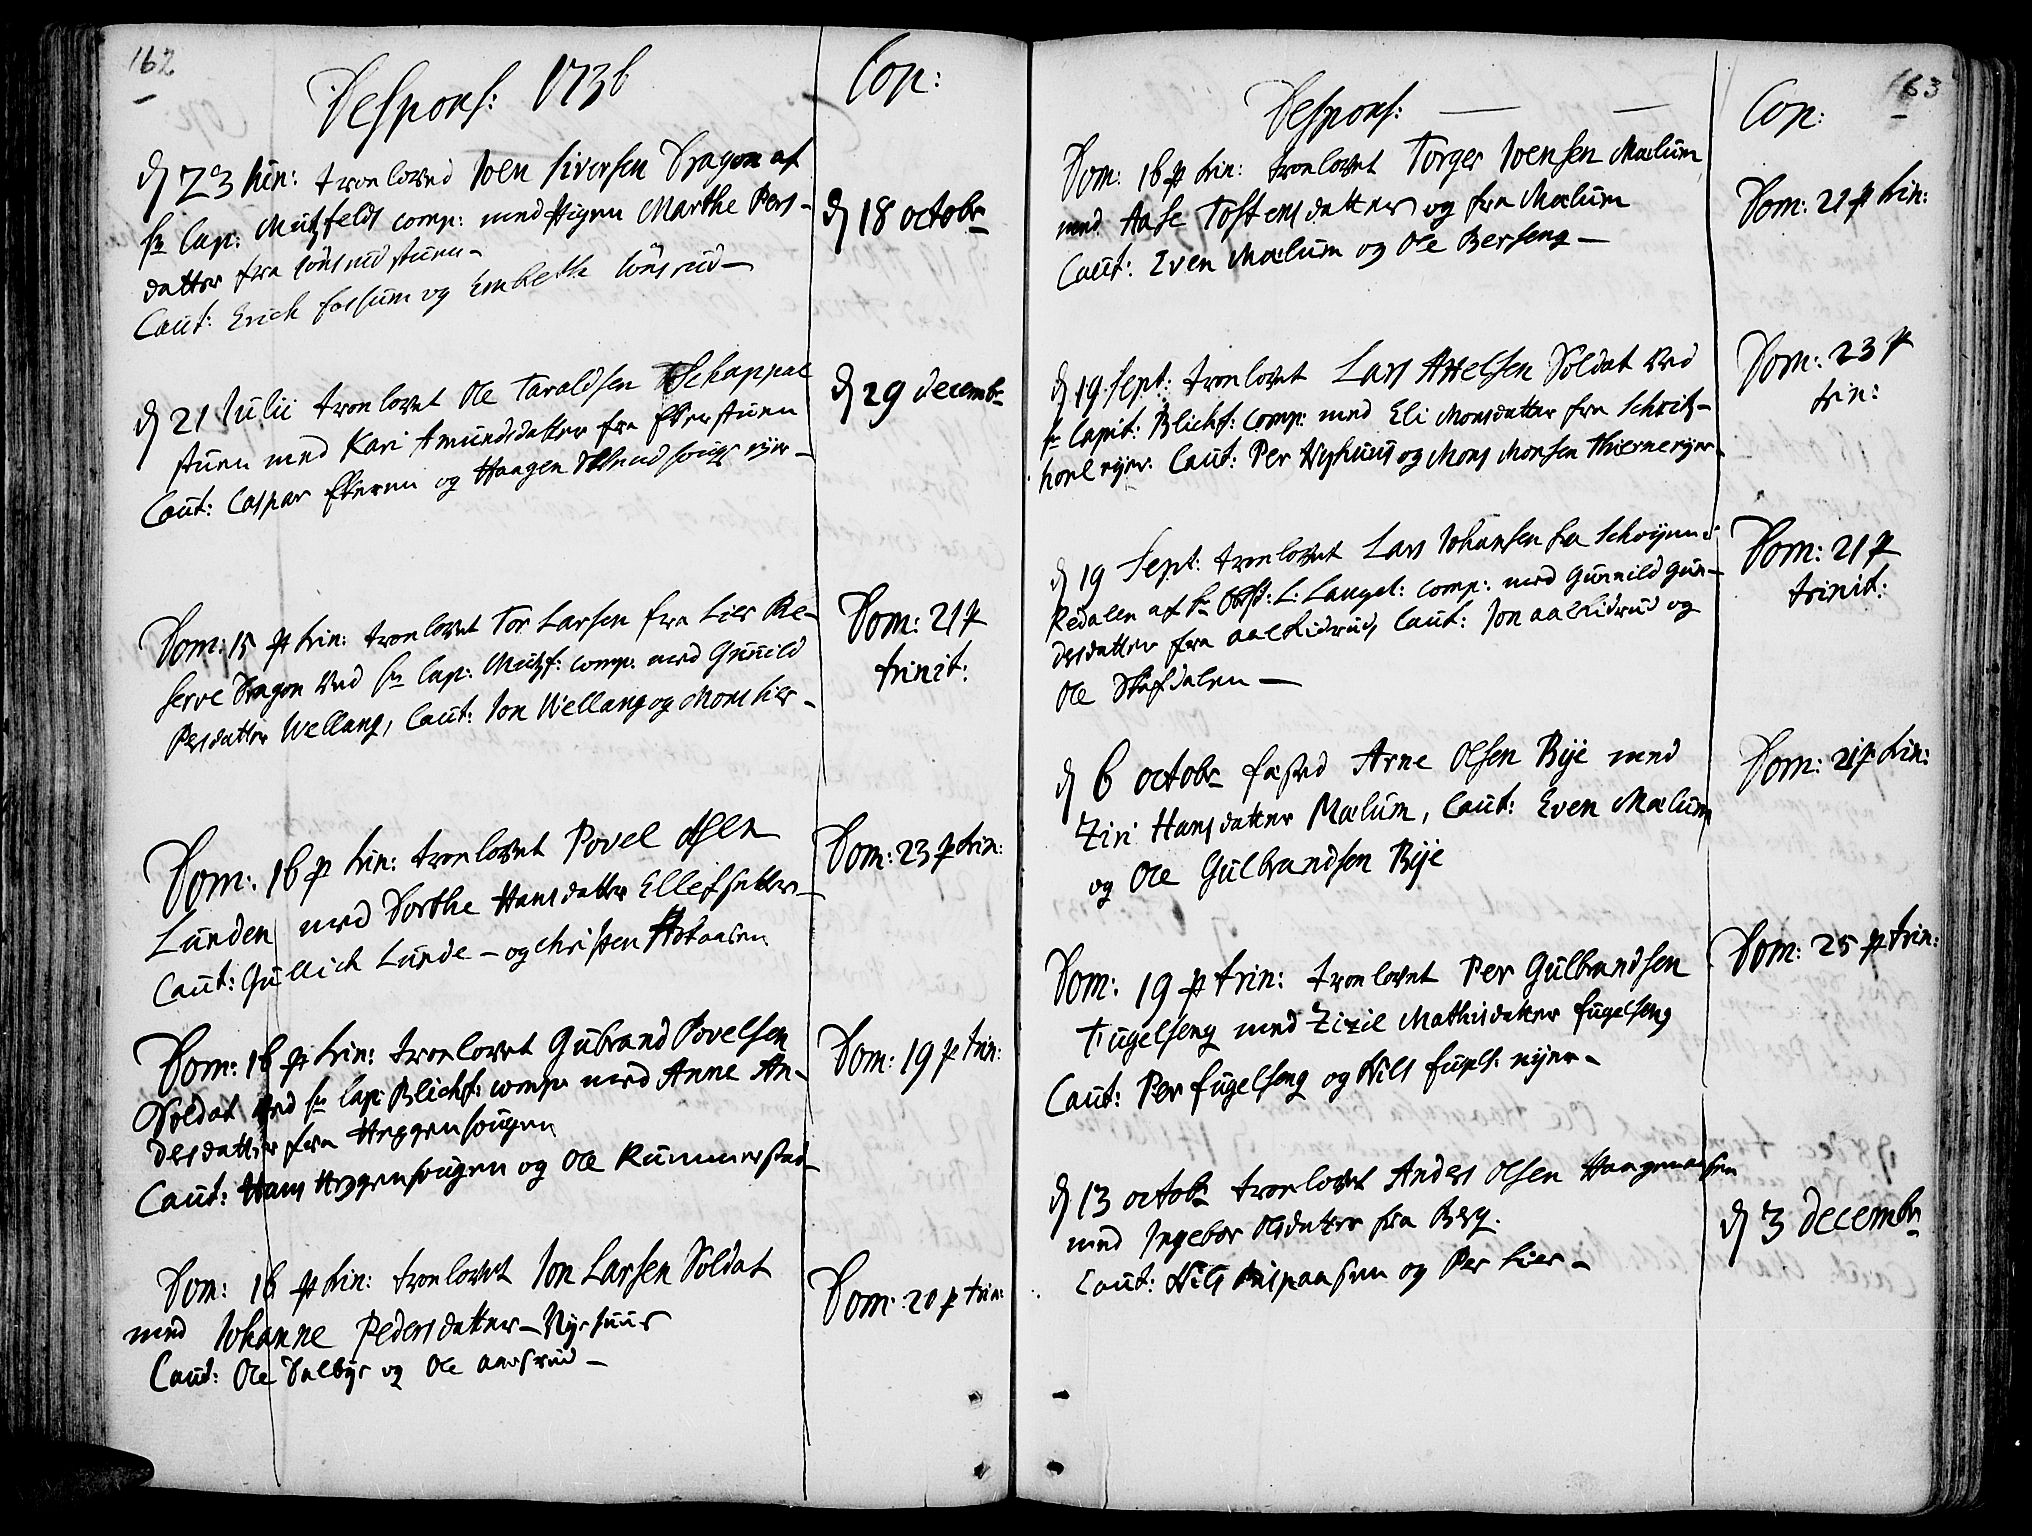 162
Despons: 1736
Cop:
d 23 Jun: troeloved Joen Siversen Dragon af
hr Cap: Mützfelds comp: med Pigen Marthe Pers-
datter fra
Caut: Erich fossum og Embette
d 18 octobr
d 21 Julii troelovet Ole Taraldsen Schappal
stuen med Kari Amundsdatter fra Ekerstuen
Caut: Caspar Ekeren og Haagen
d 29 decembr
Dom: 15 p trin: troelovet Tor Larsen fra Lier Re-
serve Dragon ved hr Cap: Mützf: comp: med Gunild
Persdatter Wellang, Caut: Jon Wellang og Mons Lier-
Dom: 21 p
trinit:
Dom: 16 p trin: troelovet Povel Olsen
Lunden med Dorthe Hansdatter Ellefsetter-
Caut: Gullich Lunde - og Christen
Dom: 23 p trin:
Dom: 16 p trin: troelovet Gubrand Povelsen
Soldat ved hr Cap: Blichf: comp: med Anne An-
dersdatter fra Heggensougen
Caut: Hans Heggensougen og Ole Rummerstad-
Dom: 19 p trin:
Dom: 16 p trin: troelovet Jon Larsen Soldat
med Johanne Pedersdatter - Nyehuus
Caut: Ole Dalbye og Ole Aasrud -
Dom: 20 p trin:
163
Despons: — —
Cop:
Dom: 16 p trin: troelovet Torger Joensen Mælum
med Aase Tostensdatter og fra Mælum
Caut: Even Mælum og Ole Berseng -
Dom: 21 p trin:
d 19 Sept: troelovet Lars Axelsen Soldat ved
hr Capit: Blichf: comp: med Eli Monsdatter fra
Caut: Per Nyhuus og Mons Monsen
Dom: 23 p
trin:
d 19 Sept: troelovet Lars Johansen fra
af hr Obrst: L: Langel: comp: med Gunnild Gun-
dersdatter fra Caut: Jon og
Ole Skafdalen —
Dom: 21 p
trinit:
d 6 octobr fæsted Arne Olsen Bye med
Ziri Hansdatter Mælum, Caut: Even Mælum
og Ole Gulbrandsen Bye
Dom: 21 p trin:
Dom: 19 p trin: troelovet Per Gulbrandsen
Fugelseng med Zizil Mathisdatter fugelseng
Caut: Per fugelseng og Nils fugels: ejer -
Dom: 25 p trin:
d 13 octobr troelovet Anders Olsen
med Ingebor Olsdatter fra Berg.
Caut: Nils og Per Lier -
d 3 decembr